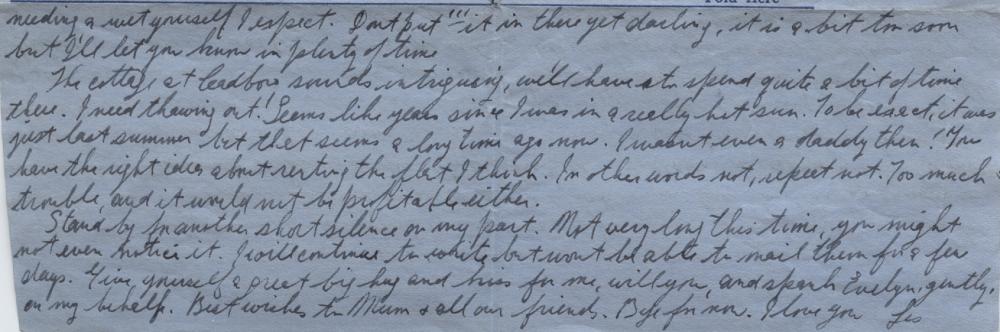 Fold Here
needing a rest yourself I expect. Dont put "it" in there yet darling, it is a bit too soon
but I'll let you know in plenty of time
The cottage at sounds intriguing, we'll have to spend quite a bit of time
there. I need thawing out! Seems like years since I was in a really hot sun. To be exact, it was
just last summer but that seems a long time ago now. I wasn't even a daddy then! You
have the right idea about renting the flat I think. In other words not, repeat not. Too much
trouble, and it would not be profitable either.
Stand by for another short silence on my part. Not very long this time, you might
not even notice it. I will continue to write but wont be able to mail them for a few
days. Give yourself a great big hug and kiss for me, will you, and spank Evelyn, gently,
on my behalf. Best wishes to Mum & all our friends. Bye for now. I love you Les